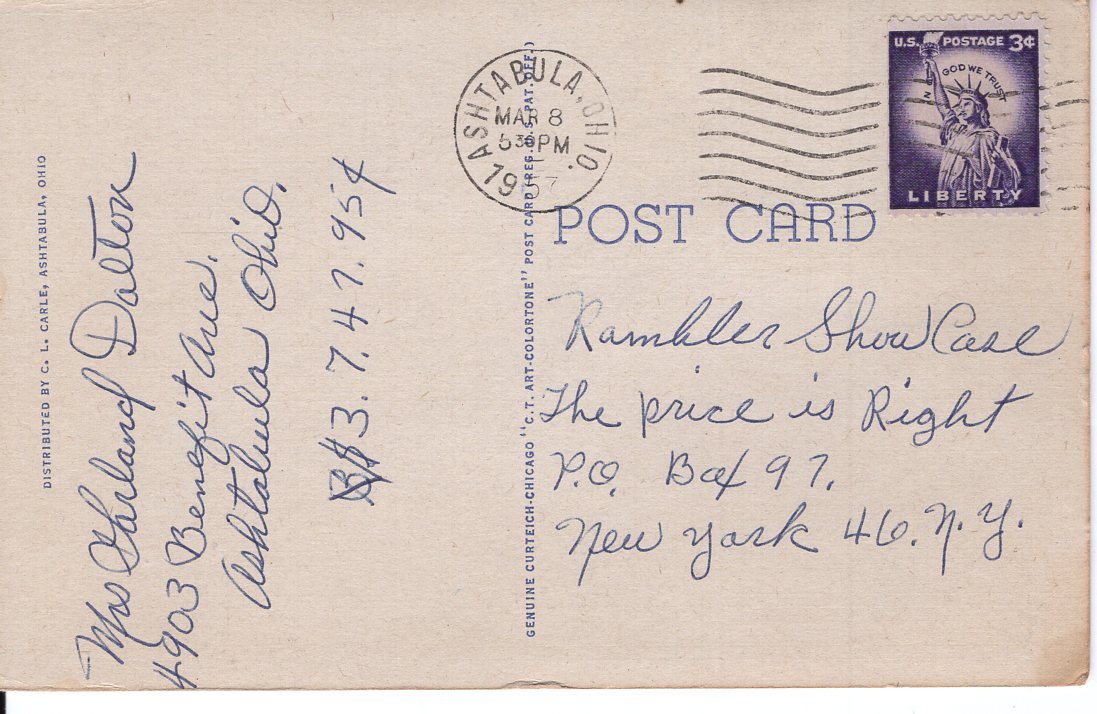 DISTRIBUTED BY C. L. CARLE, ASHTABULA, OHIO
Mrs Garland Dalton
4903 Benefit Ave.
Ashtabula Ohio.
$3.7.47.95¢
GENUINE CURTEICH-CHICAGO "C.T. ART-COLORTONE" POST CARD (REG. U.S. PAT. OFF.)
ASHTABULA, OHIO.
MAR 8
530PM
1957
U.S. POSTAGE 3¢
IN GOD WE TRUST
LIBERTY
POST CARD
Rambler ShowCase
The price is Right
P.O. Box 97.
New York 46. N.Y.